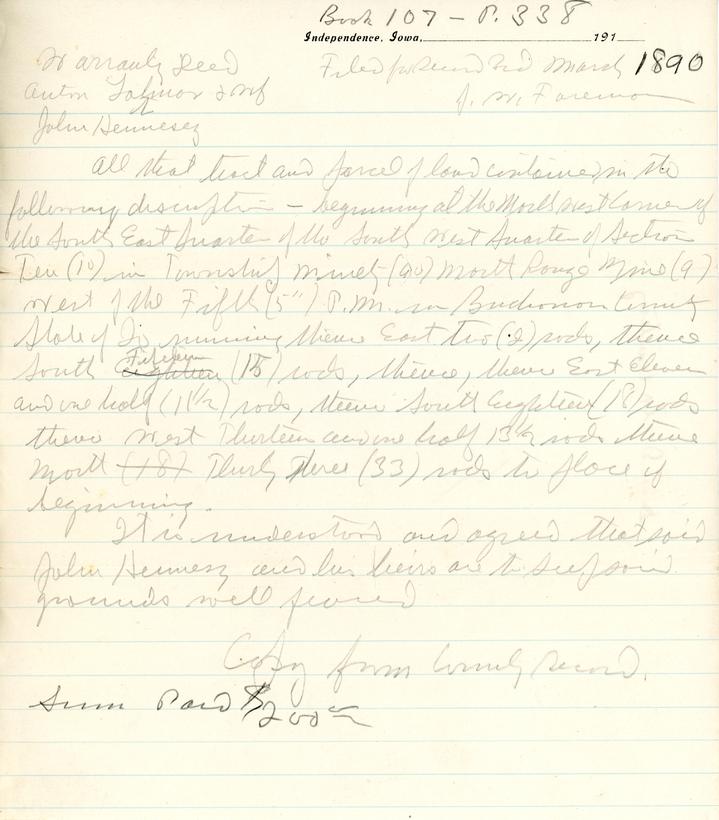 Book 107 - P. 338
Independence, Iowa, 191
Warranty Deed Filed for Record 3rd March 1890
Anton & wf J. W. Foreman
John Hennesey
All that tract and parcel of land contained in the
following discription - beginning at the North west Corner of
the South East Quarter of the South West Quarter of Section
Ten (10) in Township Ninety (90) North Range Nine (9)
West of the Fifth (5") P.M. in Buchanan County
State of Ia running thence East two (2) rods, thence
South Fifteen (15) rods, thence, thence East Eleven
and one half (11 1/2) rods, thence South Eighteen (18) rods
thence West Thirteen and one half 13 1/2 rods thence
North (18) Thirty Three (33) rods to place of
beginning.
It is understood and agreed that said
John Hennesy and his heirs are to keep said
grounds well fenced
Copy from County record.
Sum Paid $200